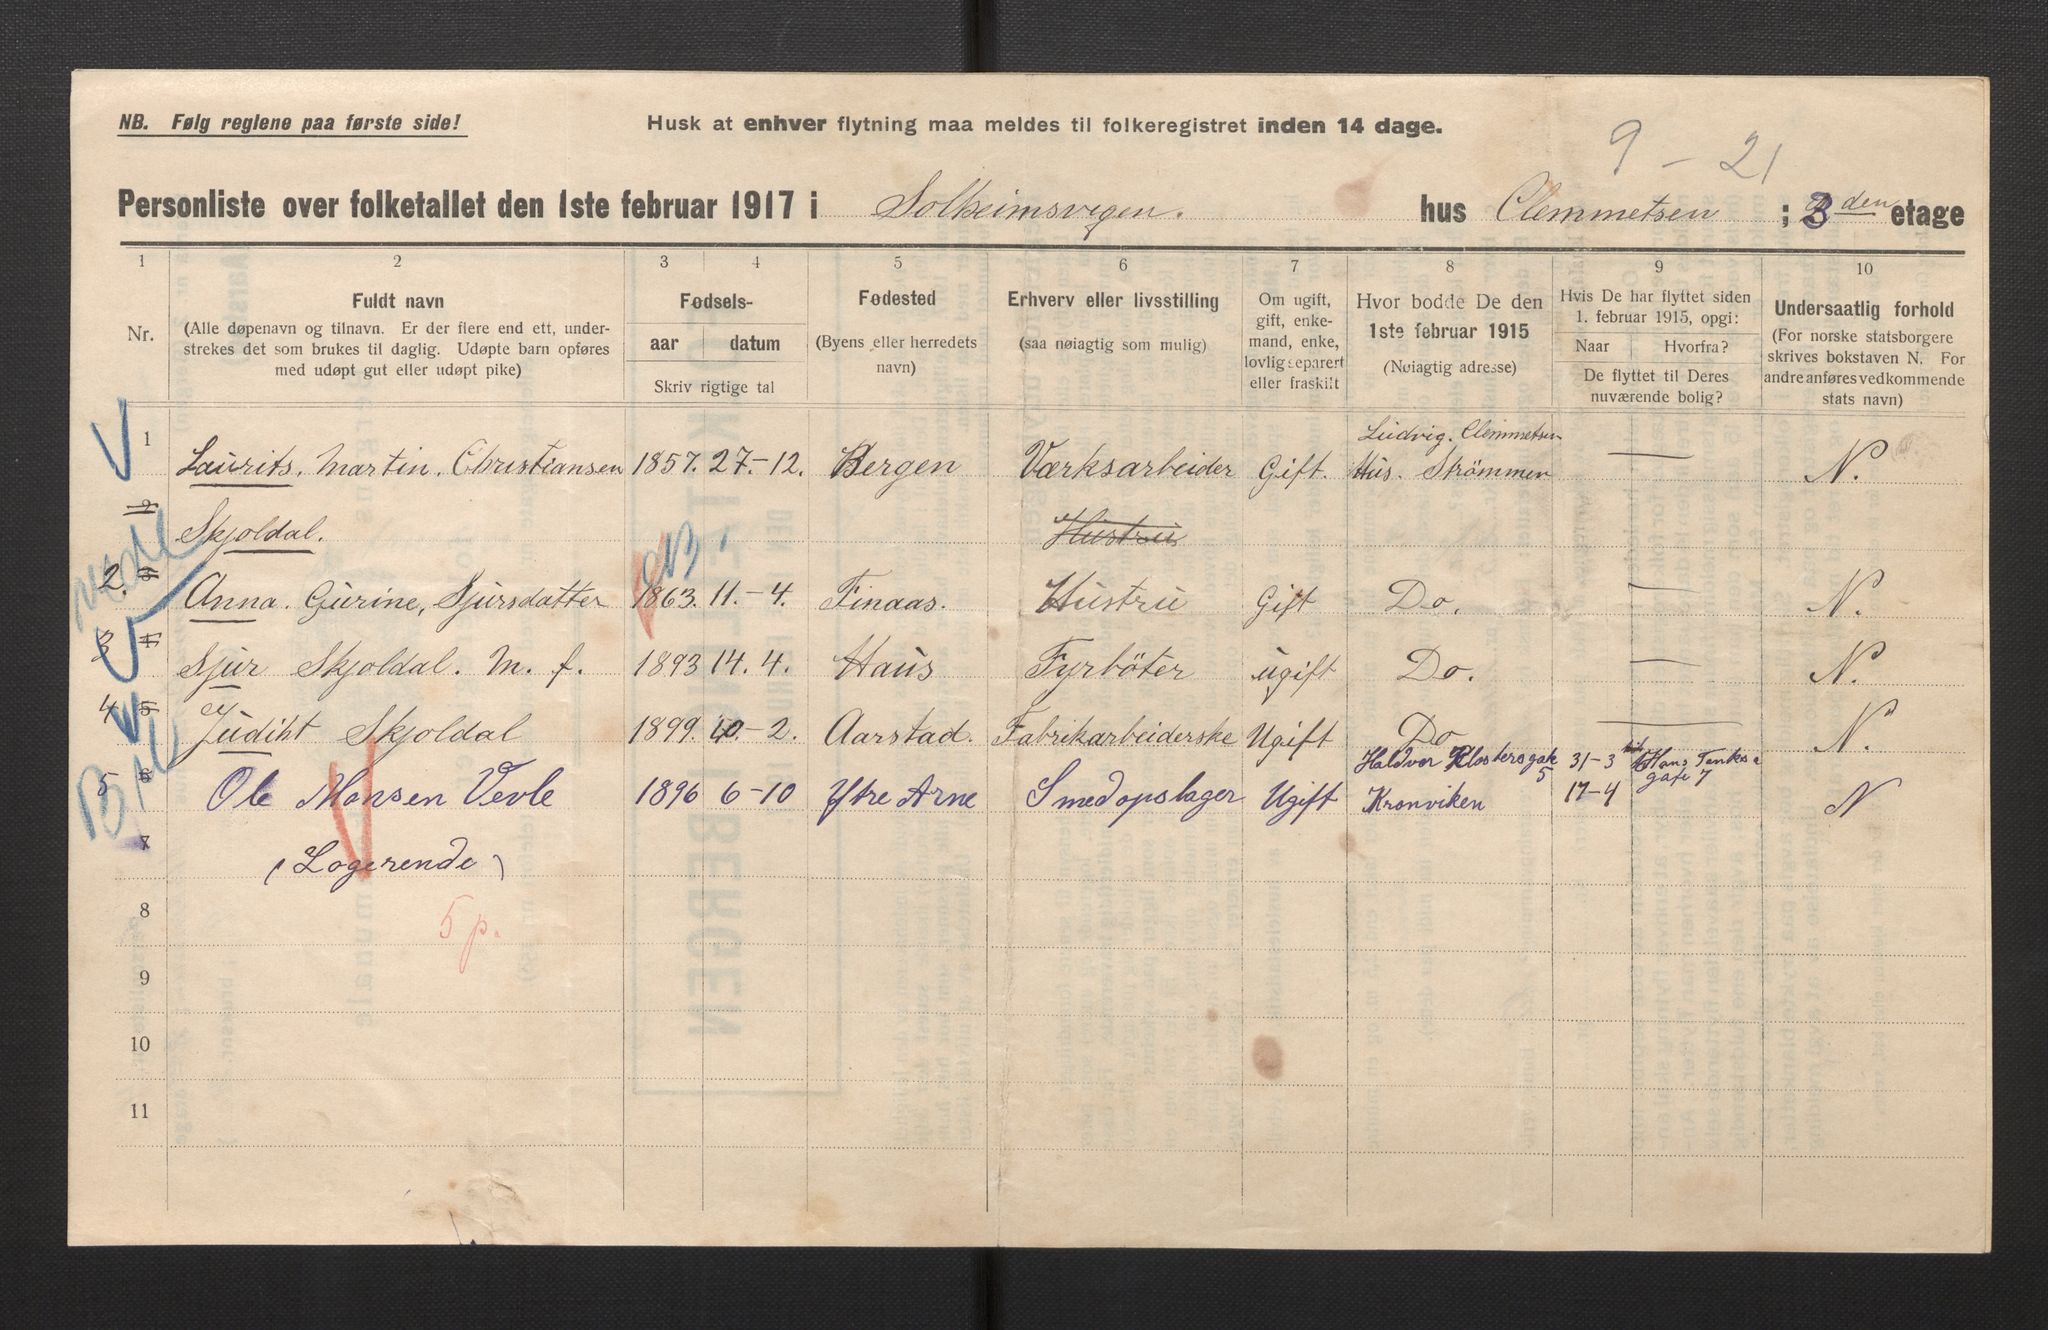 NB. Følg reglene paa første side!
Husk at enhver flytning maa meldes til folkeregistret inden 14 dage.
9 - 21
Personliste over folketallet den 1ste februar 1917 i Solheimsvigen. hus Clemmetsen ; 3 den etage
1 2 3 4 5 6 7 8 9 10
Nr.
Fuldt navn
(Alle døpenavn og tilnavn. Er der flere end ett, under-
strekes det som brukes til daglig. Udøpte barn opføres
med udøpt gut eller udøpt pike)
Fødsels-
aar datum
Skriv rigtige tal
Fødested
(Byens eller herredets
navn)
Erhverv eller livsstilling
(saa nøiagtig som mulig)
Om ugift,
gift, enke-
mand, enke,
lovlig separert
eller fraskilt
Hvor bodde De den
1ste februar 1915
(Nøiagtig adresse)
Hvis De har flyttet siden
1. februar 1915, opgi:
Naar Hvorfra?
De flyttet til Deres
nuværende bolig?
Undersaatlig forhold
(For norske statsborgere
skrives bokstaven N. For
andre anføres vedkommende
stats navn)
Ludvig. Clemmetsen
1 Laurits. Martin. Christiansen 1857. 27.-12. Bergen Værksarbeider Gift. Hus. Strömmen — N.
2 Skjoldal. Hustru
2. 3 Anna. Gurine, Sjursdatter 1863. 11.-4. Finaas. Hustru Gift Do. — N.
3 4 Sjur Skjoldal. M. f. 1893 14.4. Haus Fyrböter ugift Do. — N.
4 5 Judiht Skjoldal 1899. 10.-2. Aarstad. Fabrikarbeiderske Ugift Do — N.
Haldvor Klostersgate 5 31-3 Hans Tanks gate 7
5 6 Ole Monsen Vevle 1896 6-10 Ytre Arne Smedopslager Ugift Kronviken 17-4 N
7 (Logerende)
8 5 p.
9
10
11